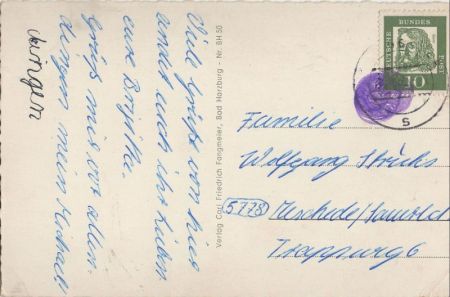 Viele Grüße von hier
sendet euch ihr Lieben
eure Brigitta.
Grüß mir vor allen
dingen mein
Jürgen
Verlag Carl Friedrich Fangmeier, Bad Harzburg - Nr. BH 50
DEUTSCHE
BUNDES
POST
10
S
Familie
Wolfgang Stricks
5778 Meschede/Sauerld